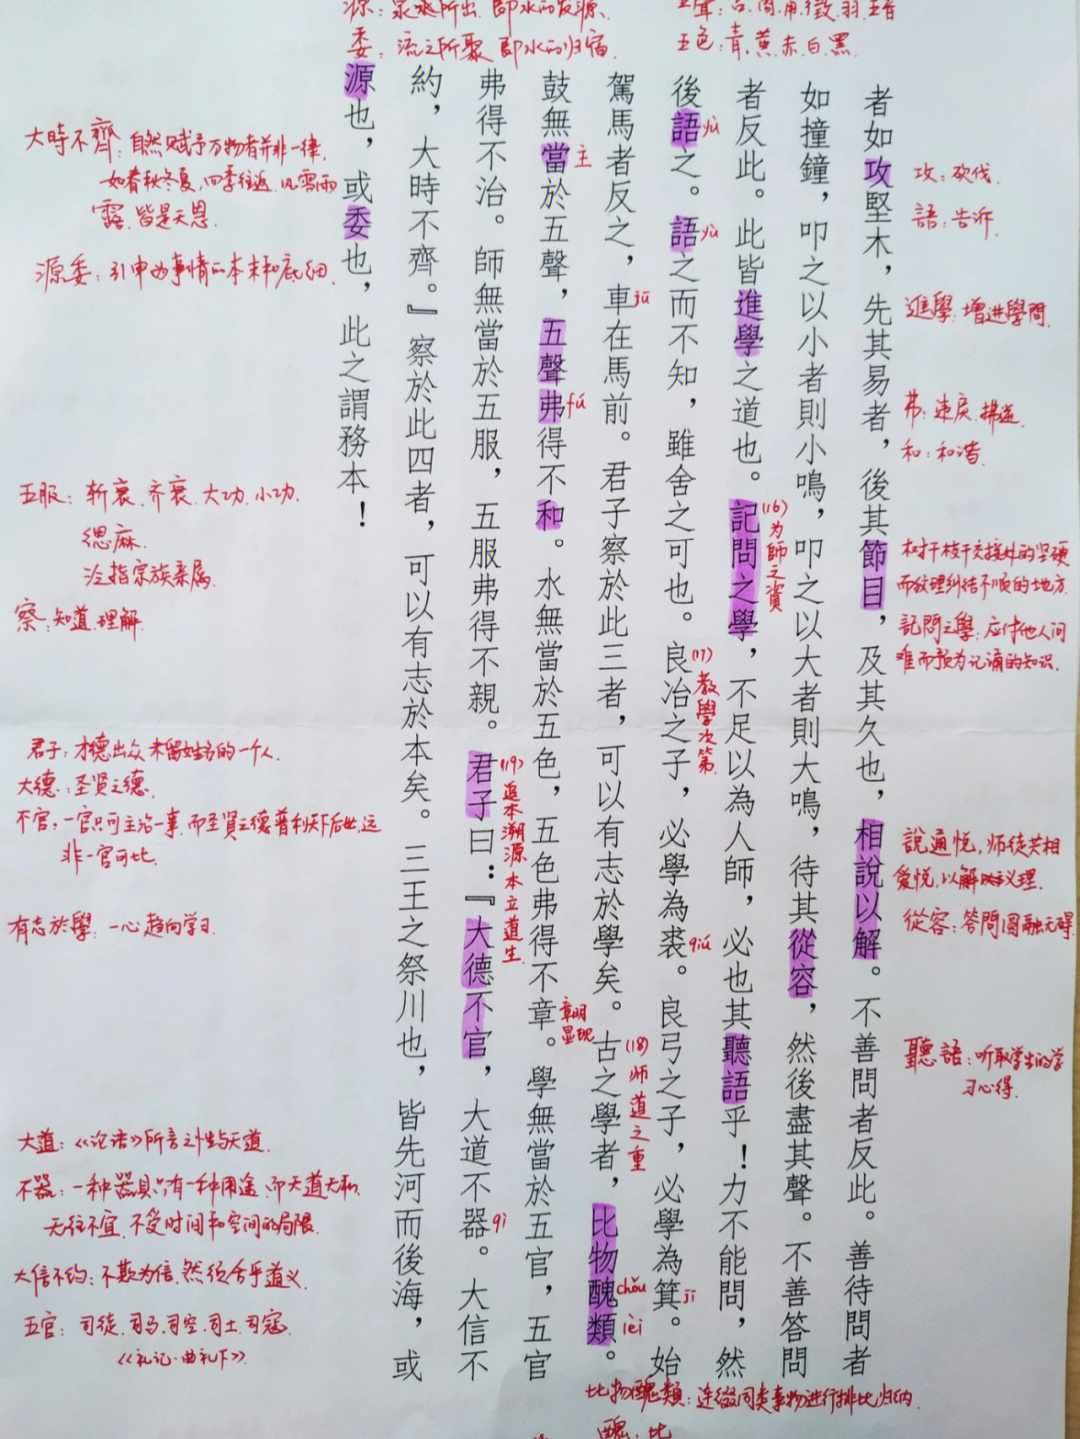 者如攻堅木，先其易者，後其節目，及其久也，相說以解。不善問者反此。善待問者
如撞鐘，叩之以小者則小鳴，叩之以大者則大鳴，待其從容，然後盡其聲。不善答問
者反此。此皆進學之道也。記問之學，不足以為人師，必也其聽語乎！力不能問，然
後語之。語之而不知，雖舍之可也。良冶之子，必學為裘。良弓之子，必學為箕。始
駕馬者反之，車在馬前。君子察於此三者，可以有志於學矣。古之學者，比物醜類。
鼓無當於五聲，五聲弗得不和。水無當於五色，五色弗得不章。學無當於五官，五官
弗得不治。師無當於五服，五服弗得不親。君子曰：『大德不官，大道不器。大信不
約，大時不齊。』察於此四者，可以有志於本矣。三王之祭川也，皆先河而後海，或
源也，或委也，此之謂務本！
yǔ
yǔ
主
jū
fú
(16)为師之資
(17)教學次第
qiú
jī
(18)师道之重
chǒu
lèi
章明
显现
(19)返本溯源 本立道生
qì
源：泉水所出 即水的发源.
委：流之所聚 即水的归宿
五聲：宫.商.角.徵.羽.五音
五色：青.黄.赤.白.黑.
攻：砍伐.
語：告诉.
進學：增进學問.
弗：违戾.拂逆.
和：和谐.
树干枝干交接处的坚硬
而纹理纠结不顺的地方.
記問之學：应付他人问
难而预为记诵的知识.
說通悦，师徒共相
爱悦，以解义理.
從容：答問圓融无碍
聽語：听取学生的学
习心得.
大時不齊：自然赋予万物者并非一律,
如春秋冬夏,四季往返,风雪雨
露,皆是天恩.
源委：引申为事情的本末和底细.
五服：斩衰.齐衰.大功.小功.
缌麻.
泛指宗族亲属.
察：知道.理解.
君子：才德出众 未留姓名的一个人.
大德：圣贤之德.
不官：一官只可主治一事,而圣賢之德普利天下后世,远
非一官可比.
有志於學：一心趋向学习.
大道：《论语》所言之性与天道.
不器：一种器具只有一种用途,而天道大私,
无往不宜,不受时间和空间的局限.
大信不约：不欺为信,然须合乎道义.
五官：司徒.司马.司空.司士.司寇.
《礼记·曲礼下》.
比物醜類：连缀同类事物进行排比归纳.
醜：比